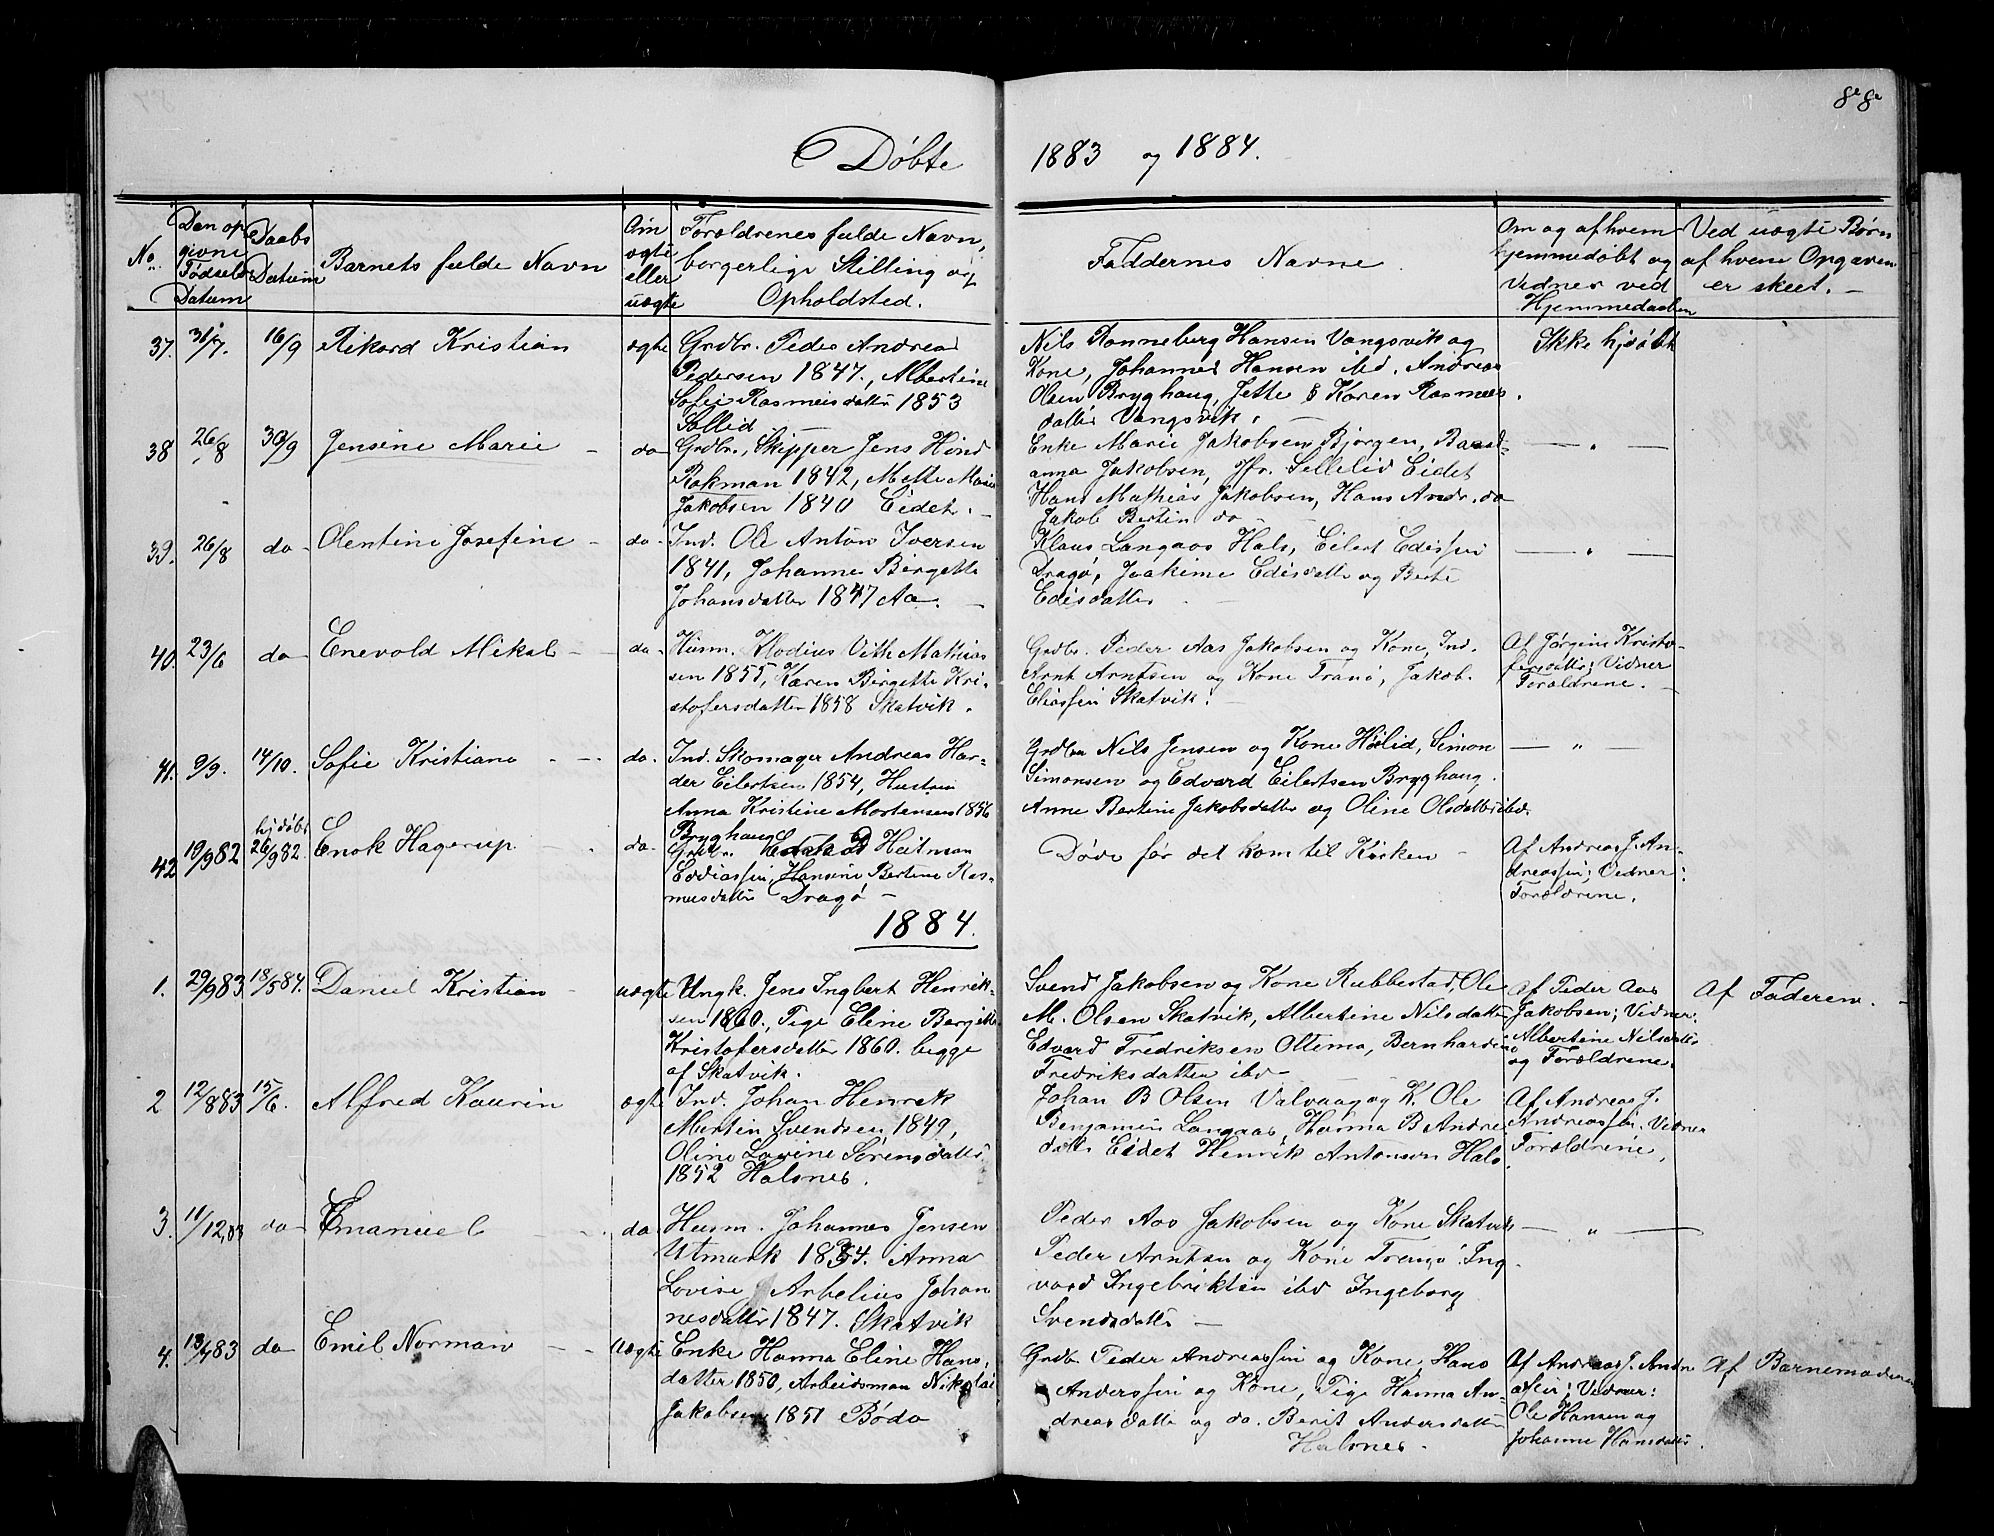 88
Døbte 1883 og 1884.
No. Den opgivne Fødsels Datum
Daabs Datum
Barnets fulde Navn
Om ægte eller uægte
Forældrenes fulde Navn, borgerlige Stilling og Opholdsted.
Faddernes Navne.
Om og af hvem hjemmedøbt og Vidner ved Hjemmedaaben
Ved uægte Børn af hvem Opgaven er skeet. –
37. 31/7. 16/9 Rikard Kristian ægte
Grdbr. Peder Andreas
Pedersen 1847., Albertine
Sofie Rasmusdatter 1853
Sollid
Nils Ronneberg Hansen Vangsvik og
Kone, Johannes Hansen ibd. Andreas
Olsen Brygghaug, Jette & Karen Rasmus
datter Vangsvik.
Ikke hjdøbt
38 26/8 30/9 Jensine Marie – do
Grdbr., Skipper Jens Hind
Rakman 1842, Mette Marie
Jakobsen 1840 Eidet. –
Enke Marie Jakobsen Bjorgen,
anna Jakobsen, Jfr. Eidet
Hans Mathias Jakobsen, Hans Andr. do
Jakob Bertin do –
— " —
39. 26/8 do Olentine Josefine – do –
Ind. Ole Anton Iversen
1841, Johanne Birgette
Johansdatter 1847 Aa. –
Klaus Langaas Hals, Eilert Edissen
Dragø, Joakime Edisdatter og Berte
Edisdatter
— " —
40. 23/6 do Enevold Mikal – do –
Husm. Klodius Vith Mathias
sen 1855, Karen Bergette Kri-
stofersdatter 1858 Skatvik.
Grdbr. Peder Aas Jakobsen og Kone, Ind.
Arnt Arntsen og Kone Tranø, Jakob
Eliassen Skatvik.
Af Jørgine Kristo-
fersdatter; Vidner
Forældrene. –
41. 9/9. 14/10. Sofie Kristiane – do.
Ind. Skomager Andreas Har-
der Eilertsen 1854, Hustru
Anna Kristine Mortensen 1856
Brygghaug
Grdbr Nils Jensen og Kone Høslid, Simon
Simonsen og Edvard Eilertsen Brygghaug.
Anne Bertine Jakobsdatter og Oline Olsdatter ibd.
— " —
42 19/9 82 hjdøbt 26/9 82. Enok Hagerup – do.
Grdbr. Heitman
Eddiassen, Hansine Bertine Ras-
musdatter Dragø –
Døde før det kom til Kirken –
Af Andreas J. An-
dreassen; Vidner:
Forældrene.
1884.
1. 29/9 83 18/5 84. Daniel Kristian – uægte
Ungk. Jens Ingbert Henrik-
sen 1860., Pige Eline Bergitte
Kristofersdatter 1860. begge
af Skatvik.
Svend Jakobsen og Kone Rubbestad, Ole
M. Olsen Skatvik, Albertine Nilsdatter
Edvard Fredriksen Oltemo, Bernhardine
Fredriksdatter ibd –
Af Peder Aas
Jakobsen; Vidner:
Albertine Nilsdatter
og Forældrene.
Af Faderen. –
2 12/8 83 15/6. Alfred Kaurin ægte
Ind. Johan Henrik
Mertin Svendsen 1849,
Oline Lovine Sørensdatter
1852 Halsnes.
Johan B Olsen Valvaag og K. Ole
Benjamin Langaas, Hanna B Andre
datter Eidet Henrik Antonsen Hals
Af Andreas J.
Andreassen, Vidner
Forældrene,
3. 11/12,83 do Emanuel – do
Husm. Johannes Jensen
Utmark 1834. Anna
Lovise Arbelius Johan
nesdatter 1847. Skatvik
Peder Aas Jakobsen og Kone Skatvik
Peder Arntsen og Kone Tranø. Ing
vard Ingebriktsen ibd Ingeborg
Svendsdatter –
— " —
4. 13/7 83 do Emil Norman – – Uægte
Enke Hanna Eline Hans-
datter 1850, Arbeidsman Nikolai
Jakobsen 1851 Bodø
Grdbr Peder Andreassen og Kone, Hans
Anderssen og Kone, Pige Hanna An-
dreasdatter og do. Berit Andersdatter
Halsnes. –
Af Andreas J. Andre
assen; Vidner:
Ole Hansen og
Johanne Hansdatter.
Af Barnemoderen